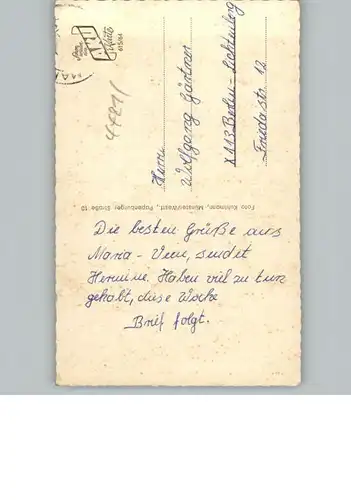 Die besten Grüße aus
Maria - Veen, sendet
Hermine. Haben viel zu tun
gehabt, diese Woche
Brief folgt.
Herrn
Wolfgang Gärtner
X 113 Berlin-Lichtenberg
Friedastr. 12
Foto Kuhlmann, Münster/Westf., Papenburger Straße 10
615/64
4421/